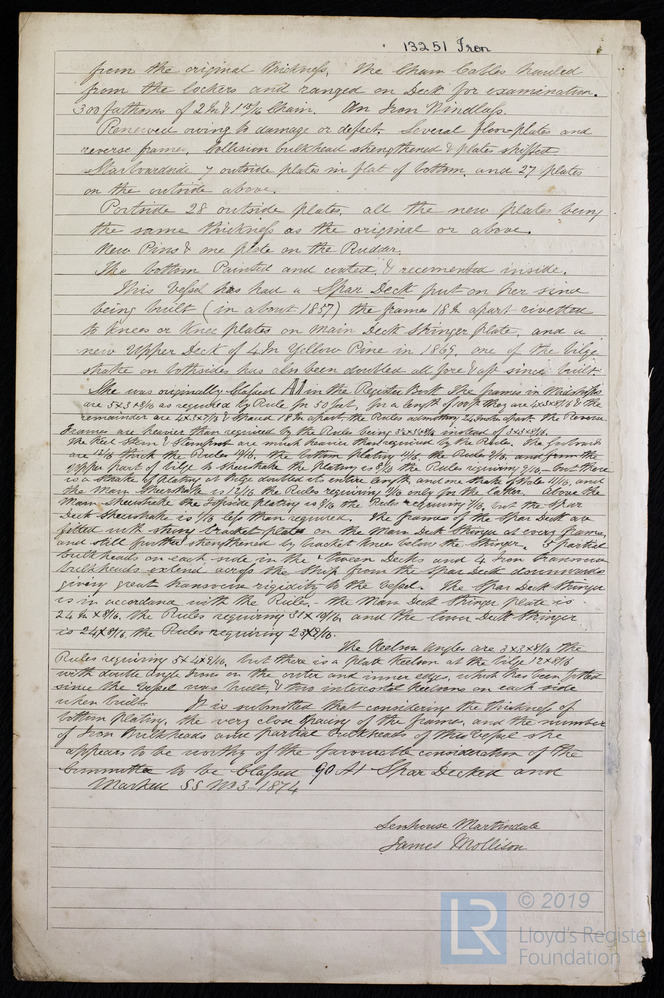 13251 Iron
from the original thickness. The Chain Cables hauled
from the lockers and ranged on Deck for examination.
300 fathoms of 2 In & 1 14/16 Chain. An Iron Windlass.
Renewed owing to damage or defect. Several floor-plates and
reverse frames, Collision bulkhead strengthened & plates shifted
Starboardside 7 outside plates in flat of bottom, and 27 plates
on the outside above.
Portside 28 outside plates, all the new plates being
the same thickness as the original or above.
New Pins & one plate on the Rudder.
The bottom Painted and coated, & recemented inside.
This Vessel has had a Spar Deck put on her since
being built (in about 1857) the frames 18 In apart rivetted
to knees or knee plates on Main Deck Stringer plate, and a
new Upper Deck of 4 In Yellow Pine in 1869, one of the bilge
strake on bothsides has also been doubled all fore & aft since built
She was originally Classed A1 in the Register Book the frames in Midships
are as required by Rule for 50 feet, for a length of they are & the
remainder are & spaced 18 In apart the Rules admitting 24 Inches apart. The Reverse
Frames are heavier than required by the Rules being instead of
The Keel Stem & Sternpost are much heavier than required by the Rules. The Garboards
are thick the Rules the bottom plating the Rules and from the
Upper part of bilge to sheerstrake the plating is the Rules requiring but there
is a strake of plating at bilge doubled its entire length and one strake of Hole and
the Main Sheerstrake is 12/16 the Rules requiring only for the latter. Above the
Main Sheerstrake the Topside plating is the Rules requiring but the Spar
Deck Sheerstrake is 1/16 less than required. The frames of the Spar Deck are
fitted with strong bracket plates on the Main Deck Stringer at every frame,
and still further strengthened by bracket knees below the Stringer. 5 partial
bulkheads on each side in the tween Decks and 4 Iron transverse
bulkheads extend across the Ship from the Spar Deck downwards
giving great transverse rigidity to the Vessel. The Spar Deck Stringer
is in accordance with the Rules. the Main Deck Stringer plate is
24 In x 8/16, the Rules requiring and the lower Deck Stringer
is the Rules requiring
The Keelson Angles are the
Rules requiring 5x4x8/16, but there is a plate Keelson at the bilge
with double Angle Irons on the outer and inner edges, which has been fitted
since the Vessel was built, & two intercostal Keelsons on each side
when built. It is submitted that considering the thickness of
bottom plating, the very close spacing of the frames, and the number
of Iron Bulkheads and partial bulkheads of this Vessel she
appears to be worthy of the favourable consideration of the
Committee to be Classed 90 A1 Spar Decked and
Marked SS No 3 1874
Senhouse Martindale
James Mollison
LR
© 2019
Lloyd's Register
Foundation